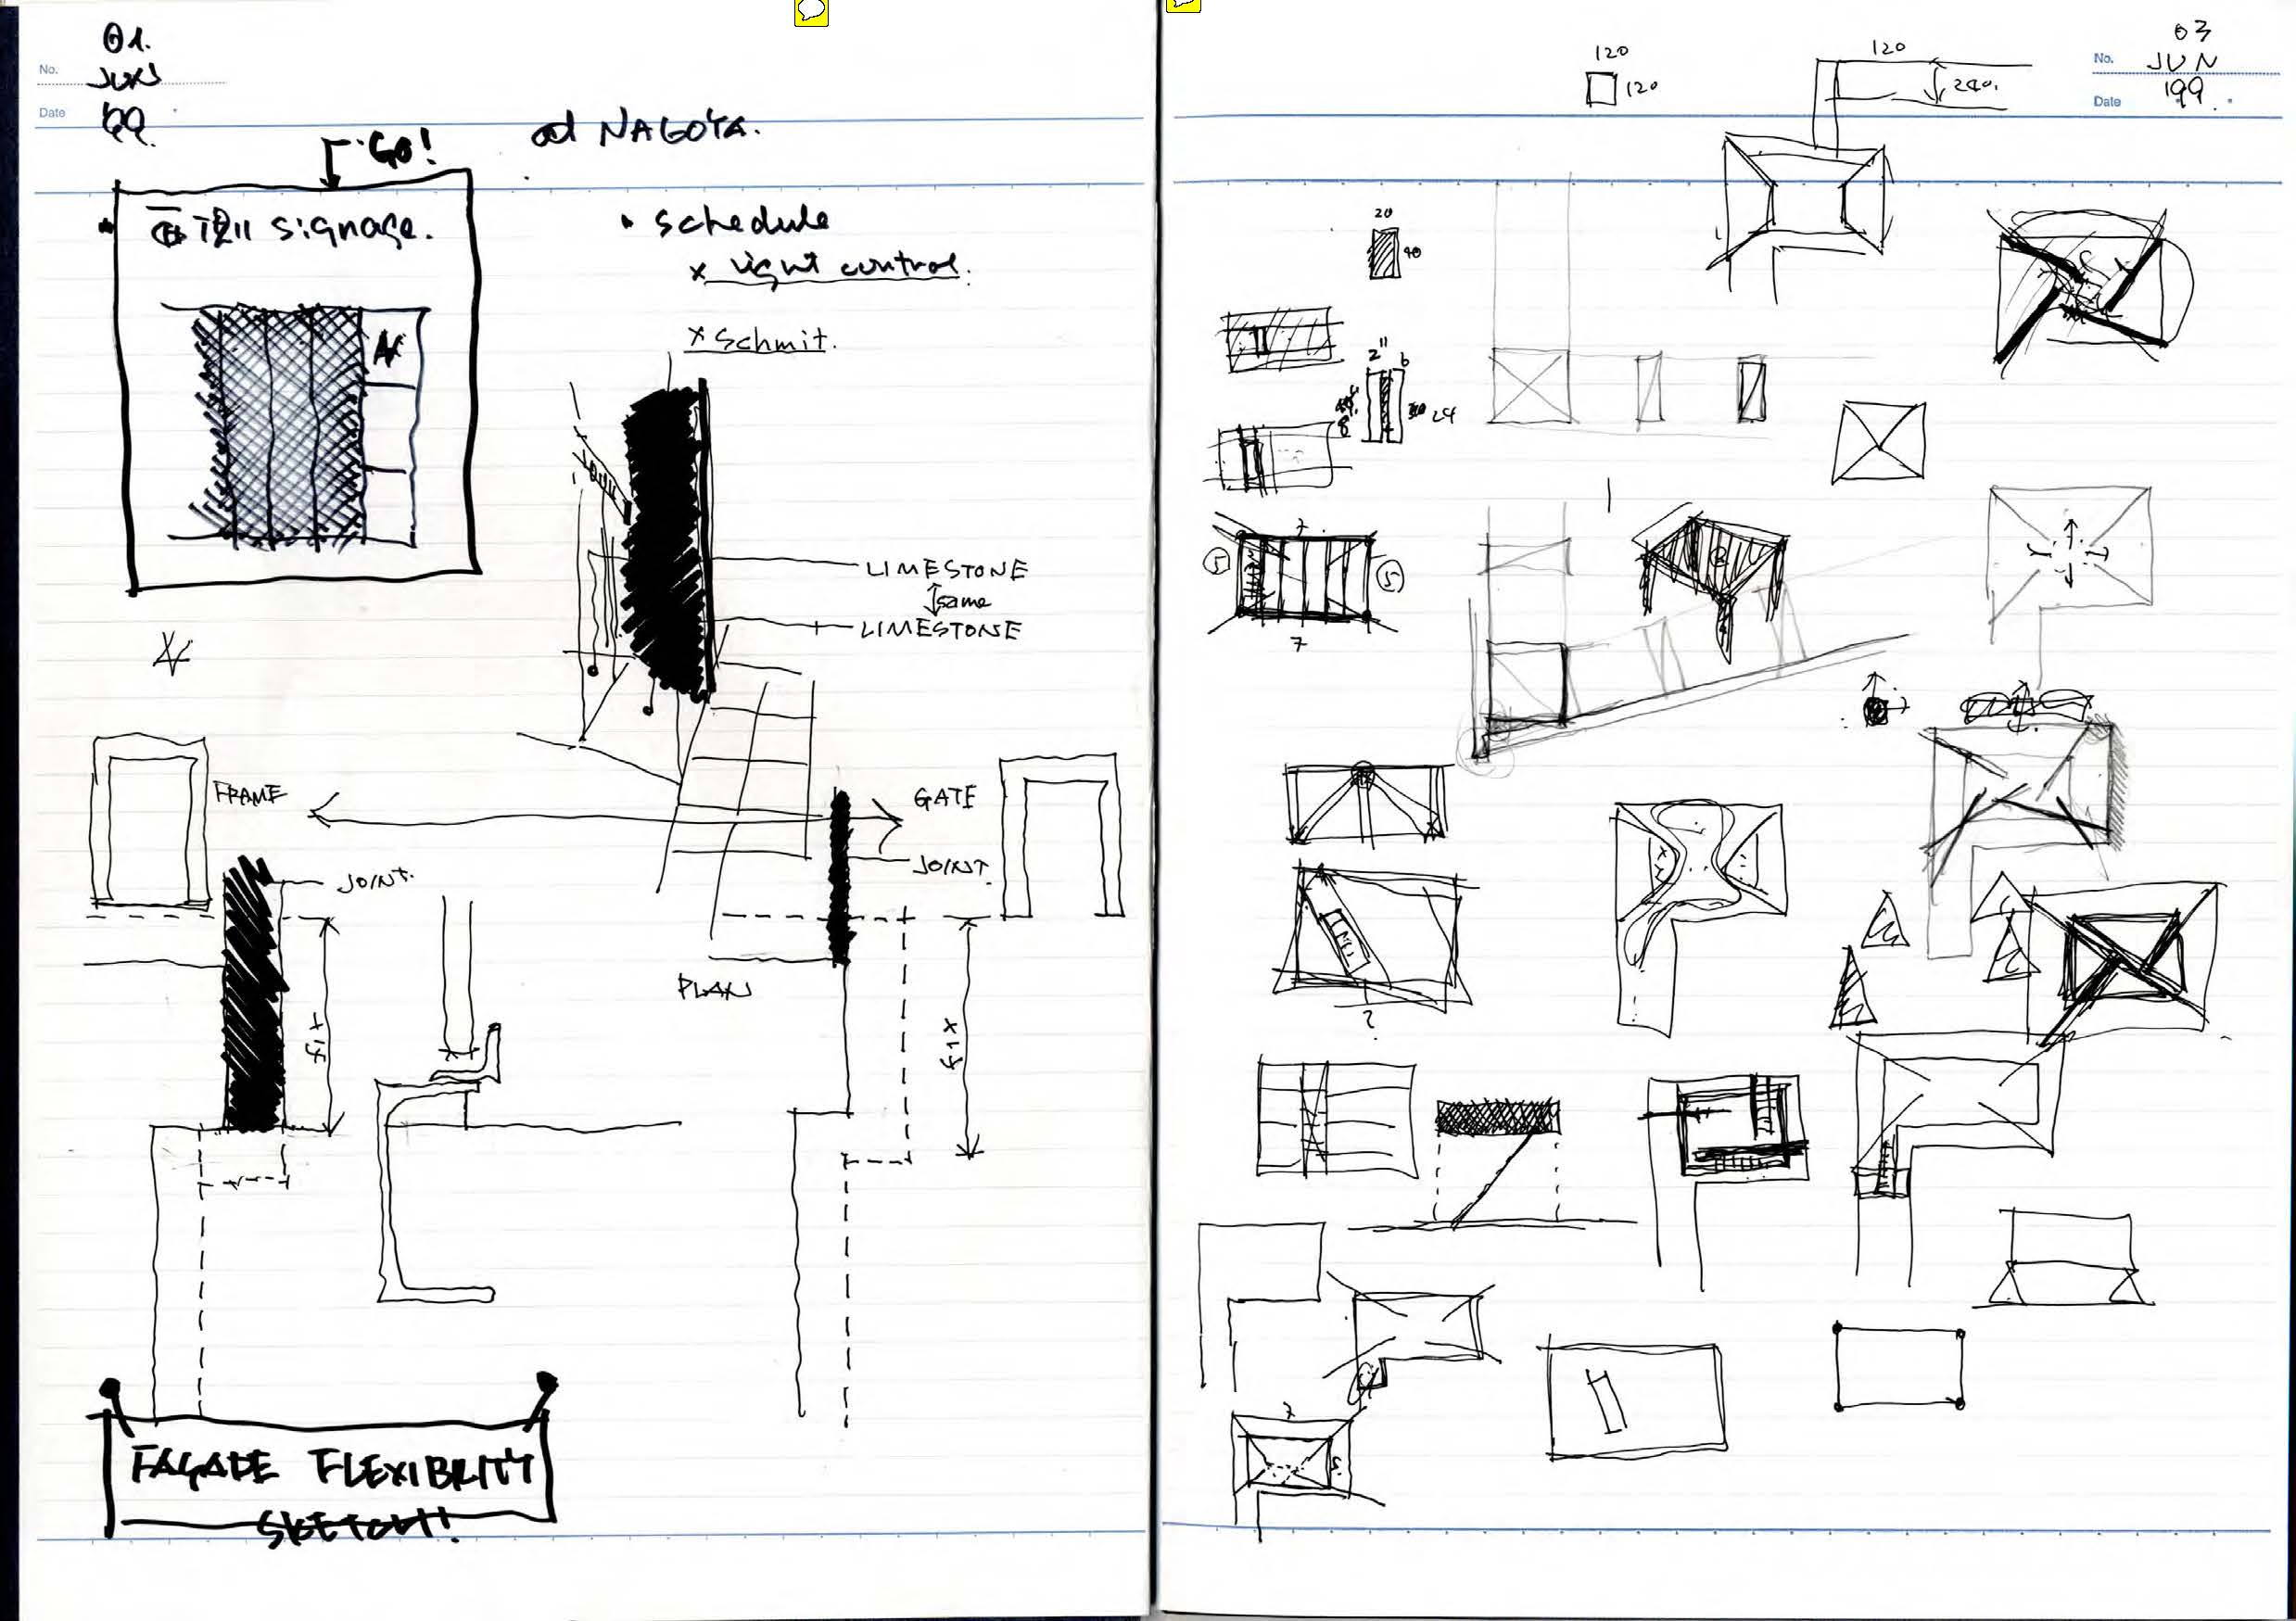 01.
No. JUN
Date '99.
at NAGOYA.
GO!
signage.
• schedule
x light control.
x Schmit.
LIMESTONE
same
LIMESTONE
FRAME
GATE
JOINT.
JOINT.
PLAN
FIX
FIX
FAÇADE FLEXIBILITY
SKETCH!
03
No. JUN
Date '99.
120
120
120
240.
20
40
2"
6
8
24
7
5
5
7
?
7
5